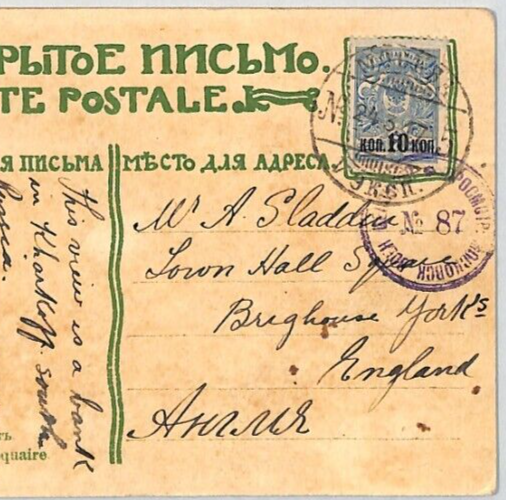 РЫТОЕ ПИСЬМО.
TE POSTALE.
Я ПИСЬМА
МѢСТО ДЛЯ АДРЕСА.
КОП. 10 КОП.
№ 87
Mr A. Sladdin
Town Hall Square
Brighouse Yorks
England
Англия
This view is a bank
in Kharkoff. South
Russia.
ть
quaire